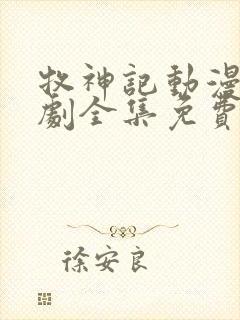 牧神記動漫
劇全集免費
徐安良